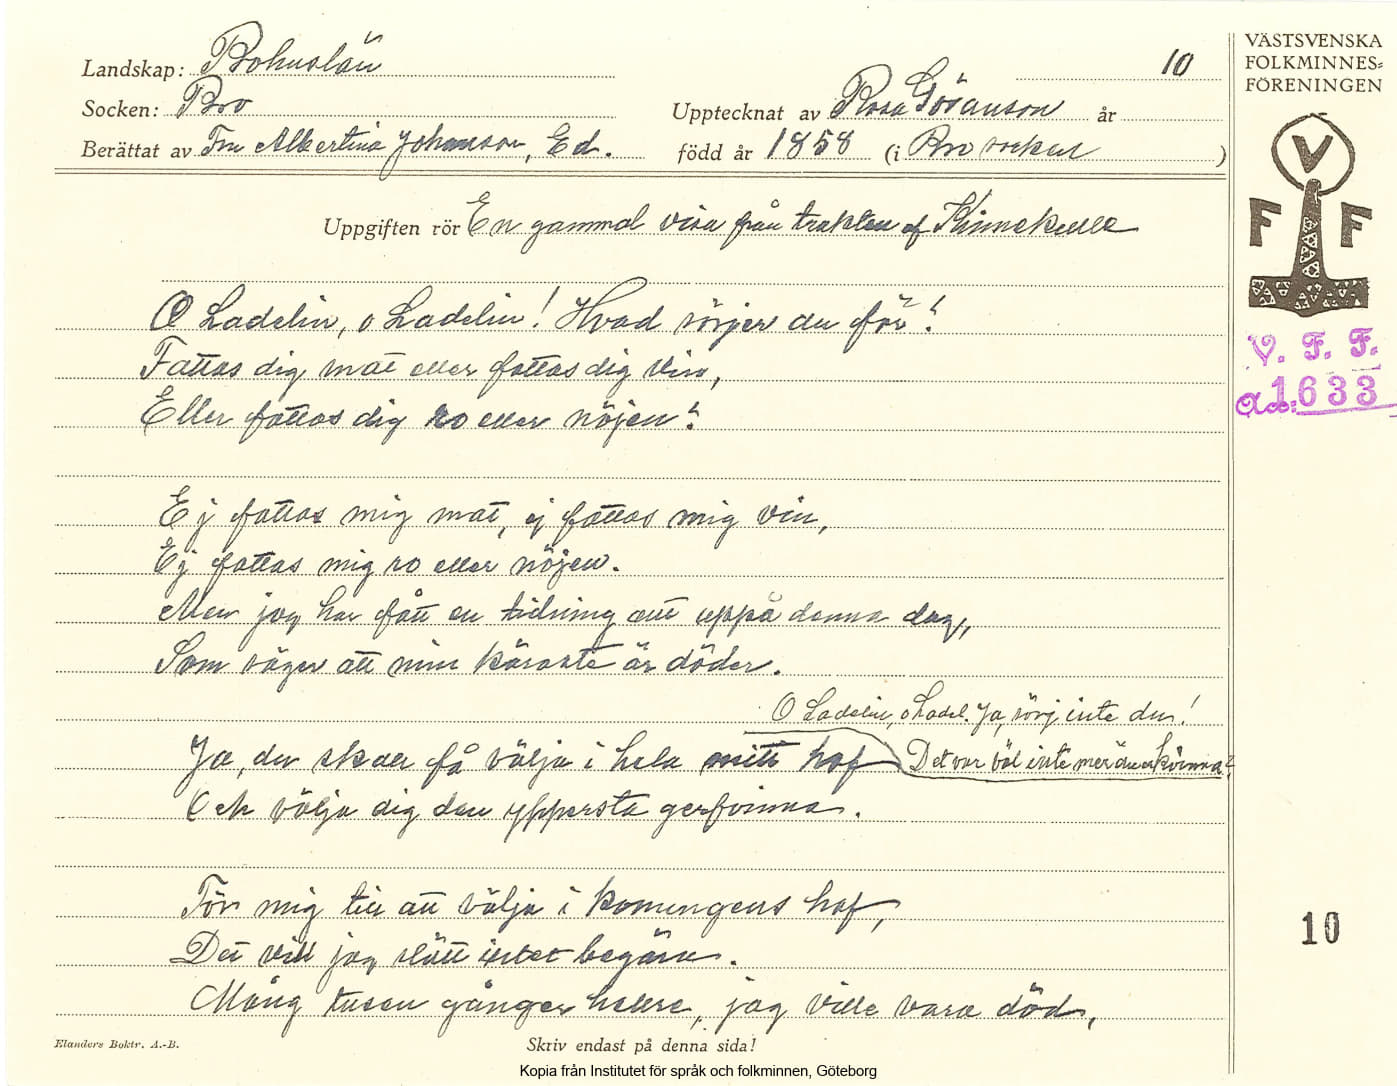 Landskap: Bohuslän
10
Socken: Bro
Upptecknat av Rosa Göranson år
Berättat av Fru Albertina Johanson, Ed.
född år 1858 (i Bro socken)
VÄSTSVENSKA
FOLKMINNES=
FÖRENINGEN
V
F F
V. F. F.
1633
Uppgiften rör En gammal visa från trakten af Kinnekulle
O Ladelin, o Ladelin! Hvad sörjer du för?
Fattas dig mat eller fattas dig vin,
Eller fattas dig ro eller nöjen?
Ej fattas mig mat, ej fattas mig vin,
Ej fattas mig ro eller nöjen.
Men jag har fått en tidning att uppå denna dag,
Som säger att min käraste är döder.
O Ladelin, o Ladel. Ja, sörj inte du!
Det var väl inte mer än en kvinna?
Ja, du skall få välja i hela mitt hof
Och välja dig den yppersta grefvinna.
För mig till att välja i konungens hof,
Det vill jag slätt intet begära.
Mång tusen gånger hellre, jag ville vara död,
10
Elanders Boktr. A.-B.
Skriv endast på denna sida!
Kopia från Institutet för språk och folkminnen, Göteborg